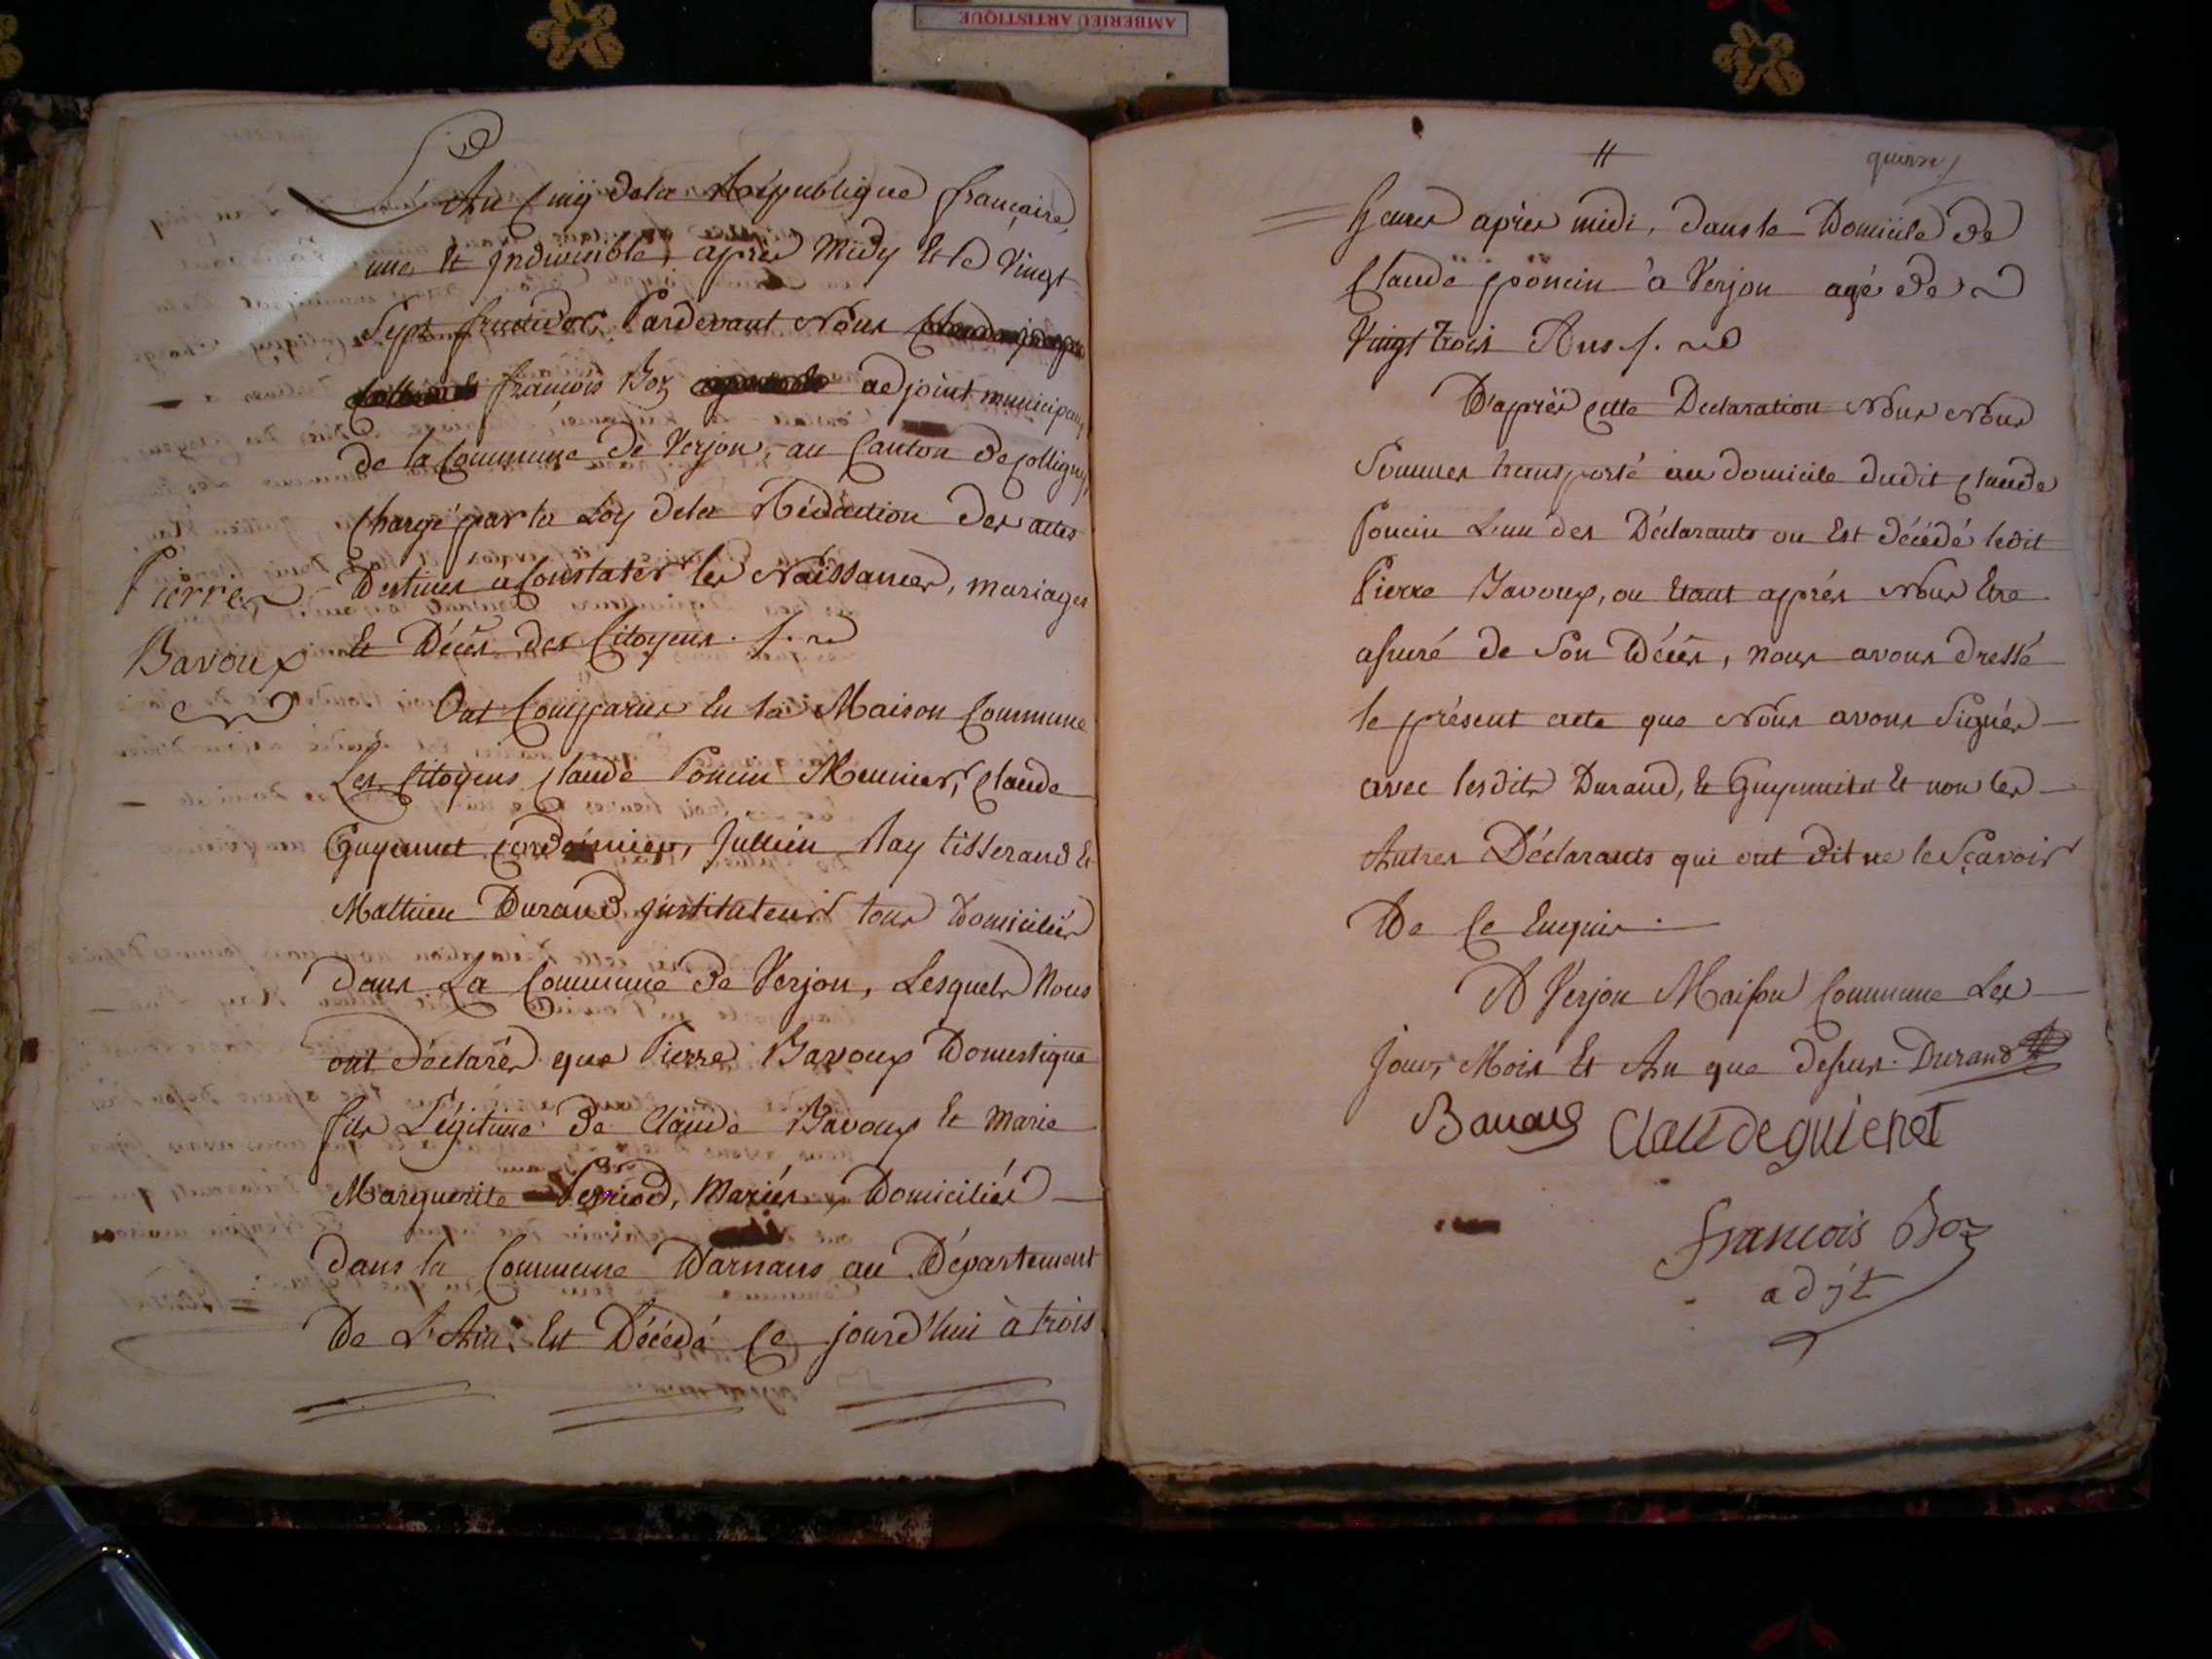 AMBERIEU ARTISTIQUE
L'An Cinq de la République française,
une Et Jndivisible, après Midy Et le Vingt
Sept fructidor, Pardevant Nous
françois Boz adjoint municipal
de la Commune de Verjon, au Canton de Colligny,
Chargé par la Loy dela Rédaction des actes
Destinés a Constater les Naissances, mariages
Et Décès des Citoyens.
Pierre
Bavoux
Ont Comparus En la Maison Commune
Les Citoyens Claude Poncin Meunier, Claude
Guyennet Cordonnier, Jullien Ray tisserand Et
Mathieu Durand Jnstituteur tous Domiciliés
dans La Commune de Verjon, Lesquels Nous
ont déclarés que Pierre Bavoux Domestique
fils Légitime de Claude Bavoux Et Marie
Marguerite Perriod, Mariés Domiciliés
dans la Commune Darnans au Département
De L'Ain. Est Décédé Ce jourd'hui à trois
11
quinze
heures après midi, dans le Domicile de
Claude poncin à Verjon agé de
Vingt trois Ans
D'après cette Declaration Nous Nous
Sommes transporté au domicile dudit Claude
Poncin L'un des Déclarants ou Est décédé ledit
Pierre Bavoux, ou Etant apprés Nous Etre
assuré de Son Décès, nous avons dressé
le présent acte que Nous avons Signés
avec lesdits Durand, Et Guyennet Et non les
Autres Déclarants qui ont dit ne le Sçavoir
De Ce Enquis.
A Verjon Maison Commune Les
Jour, Mois Et An que dessus. Durand
Claudeguienet
francois Boz
adjt